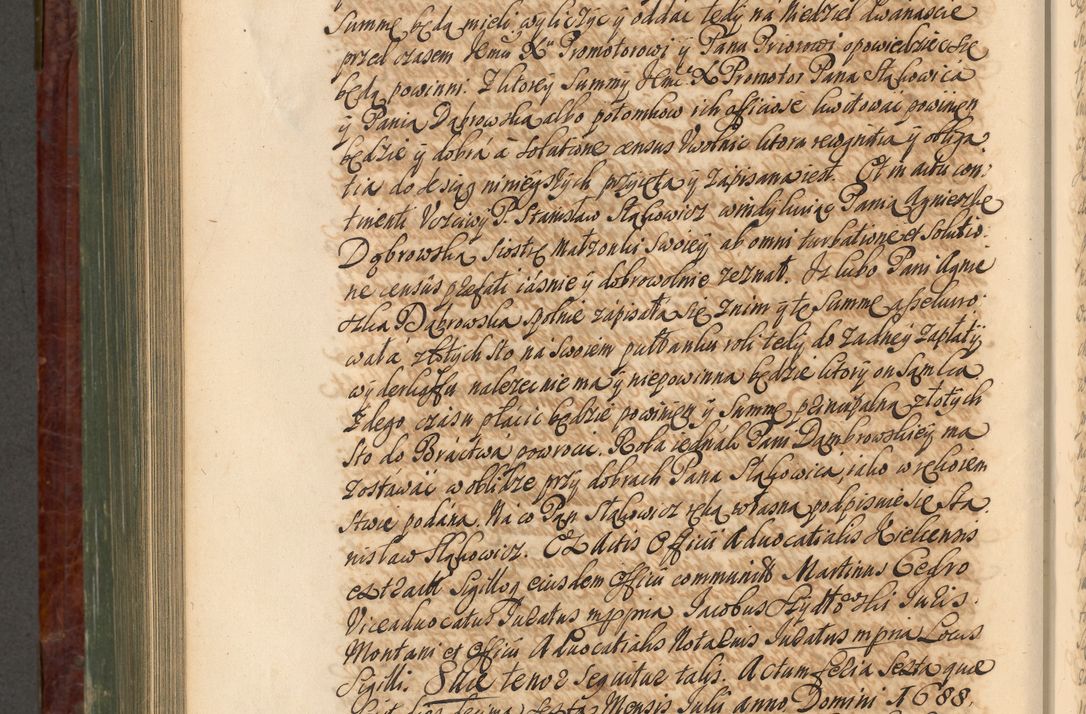 Summę będą mieli wyliczyć ÿ oddać tedÿ na Niedziel dwanascie
przed czasem Jemu X. Promotorowi ÿ Panu Priorowi opowiedziec się
będą powinni. Z ktorey Summÿ Jmć X Promotor Pana Stąkowica
ÿ Panią Dąbrowską albo potomkow ich officiose kwitować powinien
będzie ÿ dobra à Solutione census Uwolnic ktora recognitia ÿ obliga
tia do Xsiąg ninieÿszÿch przyięta ÿ zapisana iest. Et in actu con
tinenti Uczciwy P. Stanisław Stąkowicz windykuiąc Panią Agnieszkę
Dąbrowską Siostrę Małzonki Swoieÿ ab omni turbatione et Solutio
ne census præfati iásnie ÿ dobrowolnie zeznał. Iz lubo Pani Agnie
szka Dąbrowska społnie zápisała się z nim ÿ tę Summę assekuro
wała złotÿch Sto na Swoiem pułłanku roli tedÿ do zadneÿ zapłatÿ
wÿderkaffu nalezec nie ma ÿ niepowinna będzie ktorÿ on Sam ka
zdego czasu płácic będzie powinien ÿ Summę principalną złotÿch
Sto do Bráctwá powrocic. Rola iednak Pani Dąmbrowskieÿ ma
zostáwác w oblidze przÿ dobrach Pana Stąkowica, iako w rękoiem
stwie podana. Na co Pan Stąkowicz ręką własną podpisuie się Sta
nisław Stąkowicz. Ex Actis Officii Aduocatialis Kielcensis
extradit Sigillo eiusdem officii communit Martinus Cedro
Viceaduocatus Juratus mppria Jacobus Juris
Montani et Officii Aduocatialis Notarius Juratus mpria Locus
Sigilli. Suae tenor sequitur talis. Actum feria Sexta quæ
Mensis Julii anno Domini 1688.